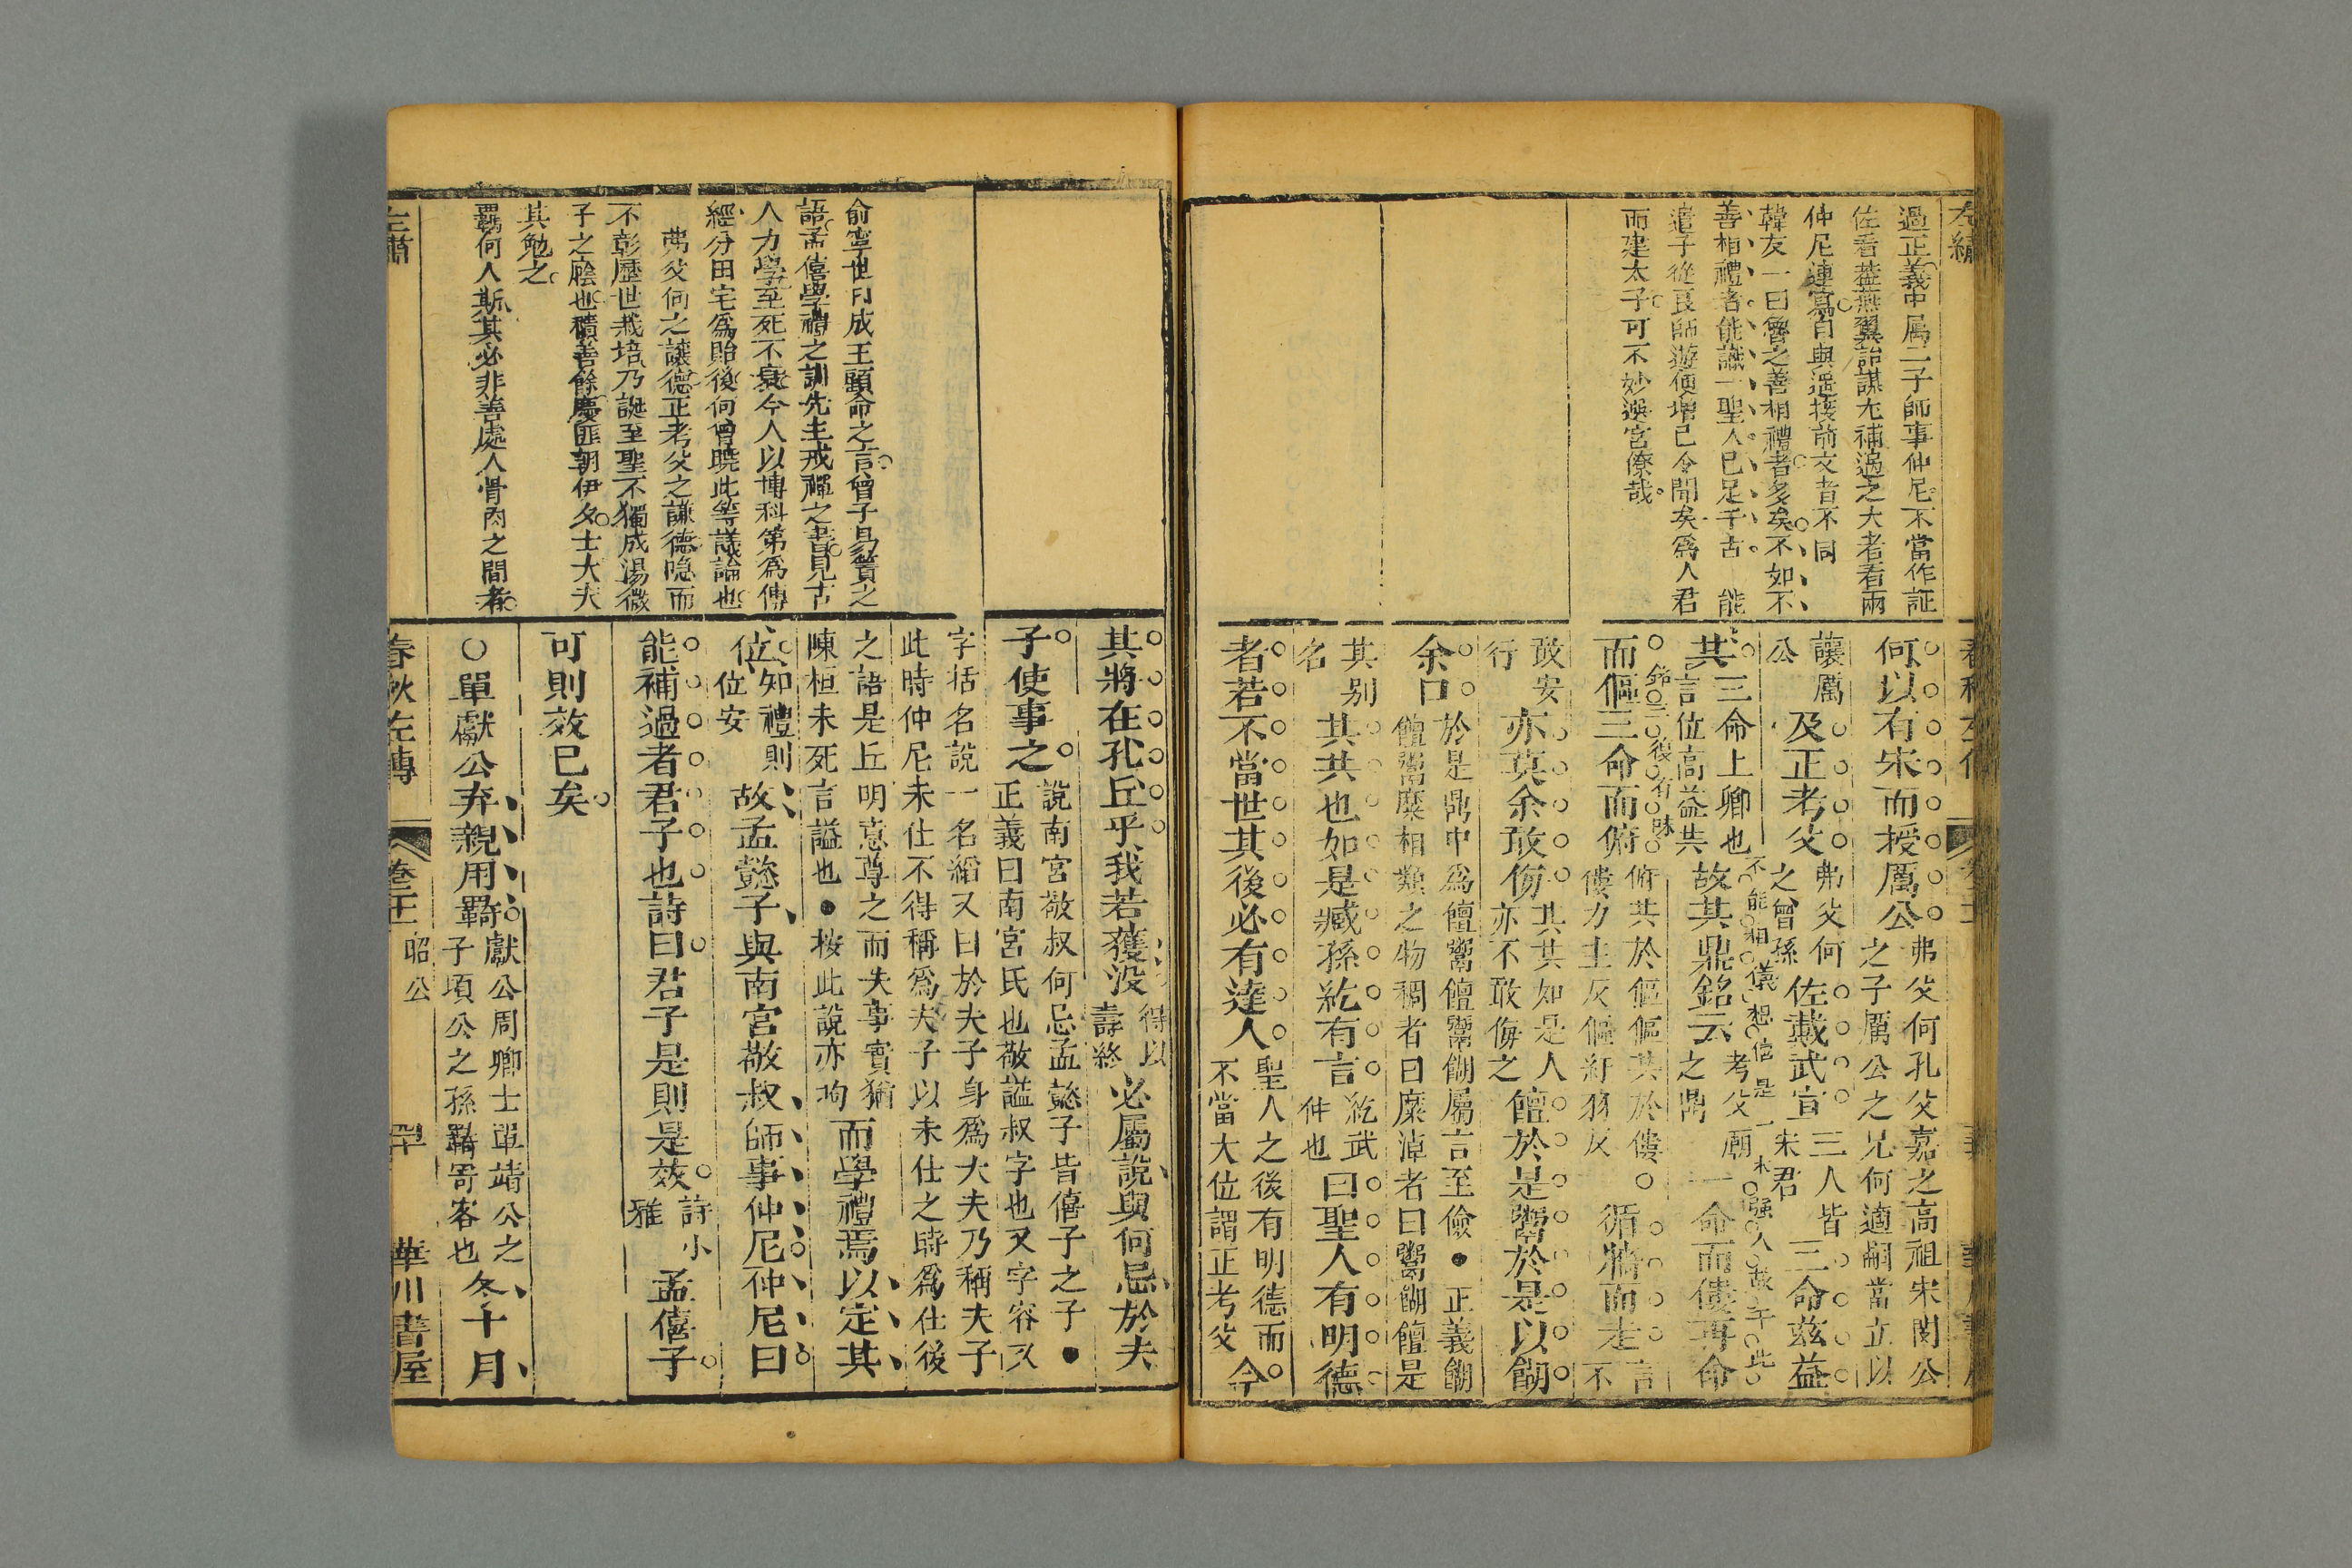 左繡
過正義中属二子師事仲尼不當作証
佐看葢燕翼詒謀尢補過之大者看兩
仲尼連寫自與遥接前文者不同
韓友一曰魯之善相禮者多矣不如不
善相禮者能識一聖人已足千古 能
遣子從良師遊便增已令聞矣爲人君
而建太子可不妙選宮僚哉
春秋左傳
何以有宋而授厲公弗父何孔父嘉之高祖宋閔公
之子厲公之兄何適嗣當立以
讓厲
公及正考父弗父何
之曾孫佐戴武宣三人皆
宋君三命兹益
共三命上卿也
言位高益共故其鼎銘云考父廟
之鼎一命而僂再命
不能相儀想信是一木强人故于此
而傴三命而俯俯共於傴傴共於僂
僂力主反傴紆羽反循牆而走言
不
銘三復有味
敢安
行亦莫余敢侮其共如是人
亦不敢侮之饘於是鬻於是以餬
余口於是鼎中爲饘鬻饘鬻餬屬言至儉●正義餬
饘鬻糜相類之物稠者曰糜淖者曰鬻餬饘是
其别
名其共也如是臧孫紇有言紇武
仲也曰聖人有明德
者若不當世其後必有達人聖人之後有明德而
不當大位謂正考父今
俞寧世曰成王顧命之言曾子易簀之
語孟僖學禮之訓先主戒禪之書見古
人力學至死不衰今人以博科第爲傳
經分田宅爲貽後何曾曉此等議論也
弗父何之讓德正考父之謙德隐而
不彰歷世栽培乃誕至聖不獨成湯微
子之廕也積善餘慶匪朝伊夕士大夫
其勉之
羈何人斯其必非善處人骨肉之間者
其將在孔丘乎我若獲没得以
壽終必屬說與何忌於夫
子使事之說南宮敬叔何忌孟懿子皆僖子之子●
正義曰南宮氏也敬謚叔字也又字容又
字括名說一名縚又曰於夫子身爲大夫乃稱夫子
此時仲尼未仕不得稱爲夫子以未仕之時爲仕後
之語是丘明意尊之而失事實猶
陳桓未死言謚也●按此說亦拘而學禮焉以定其
位知禮則
位安故孟懿子與南宮敬叔師事仲尼仲尼曰
能補過者君子也詩曰君子是則是效詩小
雅孟僖子
可則效已矣
○單獻公弃親用羈獻公周卿士單靖公之
子頃公之孫羈寄客也冬十月
左繡
春秋左傳
昭公
華川書屋